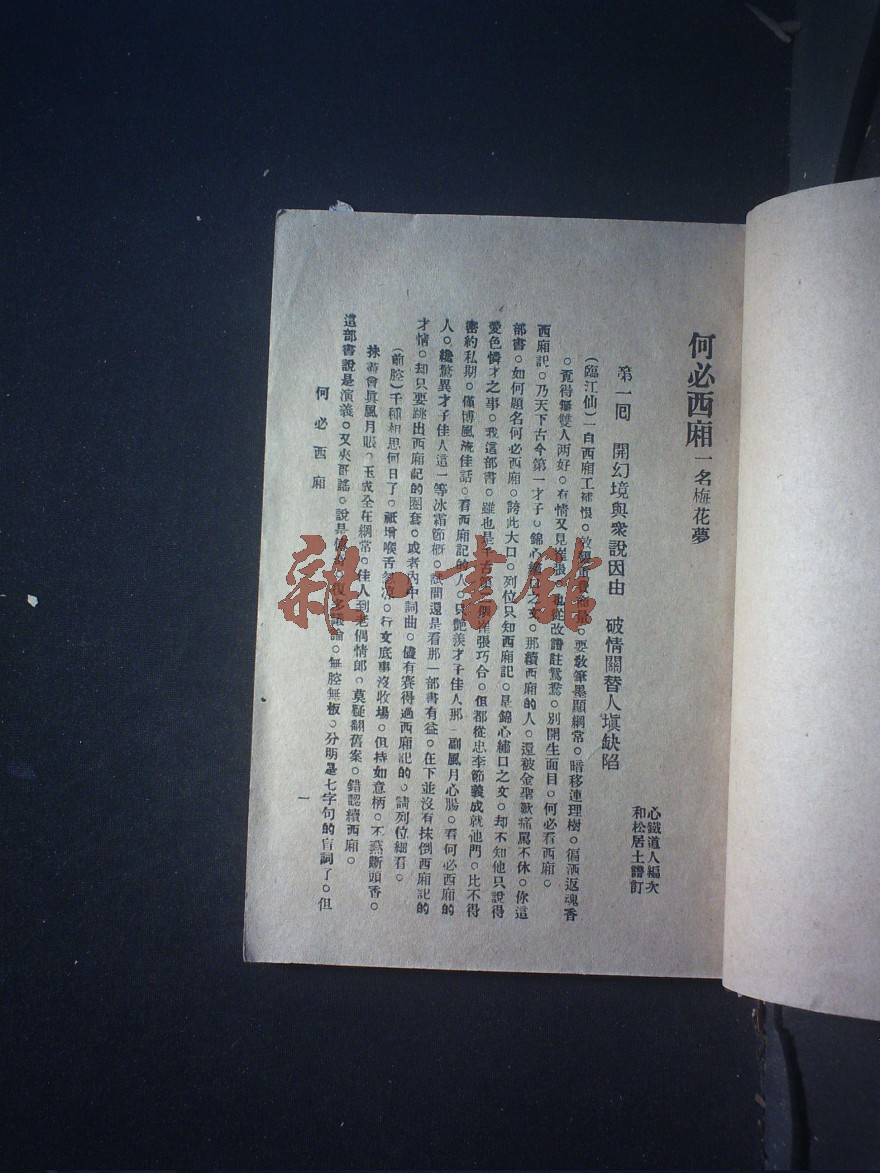 何必西廂 一名梅花夢
心鐵道人編次
和松居士譜訂
第一囘 開幻境與衆說因由 破情關替人塡缺陷
(臨江仙)一自西廂工補恨。 要敎筆墨顯綱常。暗移連理樹。偏洒返魂香
。覓得無雙人两好。有情又見 改譜註鴛鴦。別開生面目。何必看西廂。
西廂記。乃天下古今第一才子。錦心繡口之文。那續西廂的人。還被金聖歎痛罵不休。你這
部書。如何題名何必西廂。誇此大口。列位只知西廂記。是錦心繡口之文。却不知他只說得
愛色憐才之事。我這部書。雖也是千古第一 崔張巧合。但都從忠孝節義成就他們。比不得
密約私期。僅博風流佳話。看西廂記的人。只艷羨才子佳人那一副風月心腸。看何必西廂的
人。纔驚異才子佳人這一等冰霜節槪。試問還是看那一部書有益。在下並沒有抹倒西廂記的
才情。却只要跳出西廂記的圈套。或者內中詞曲。儘有賽得過西廂記的。請列位細看。
(前腔)千種相思何日了。祇增喉舌 行文底事沒收場。但持如意柄。不爇斷頭香。
抹葢會眞風月賬。玉 全在綱常。佳人到老偶情郎。莫疑翻舊案。錯認續西廂。
這部書說是演義。又夾歌謠。說是傳奇。復多議論。無腔無板。分明是七字句的盲詞了。但
何必西廂
一
雜·書館